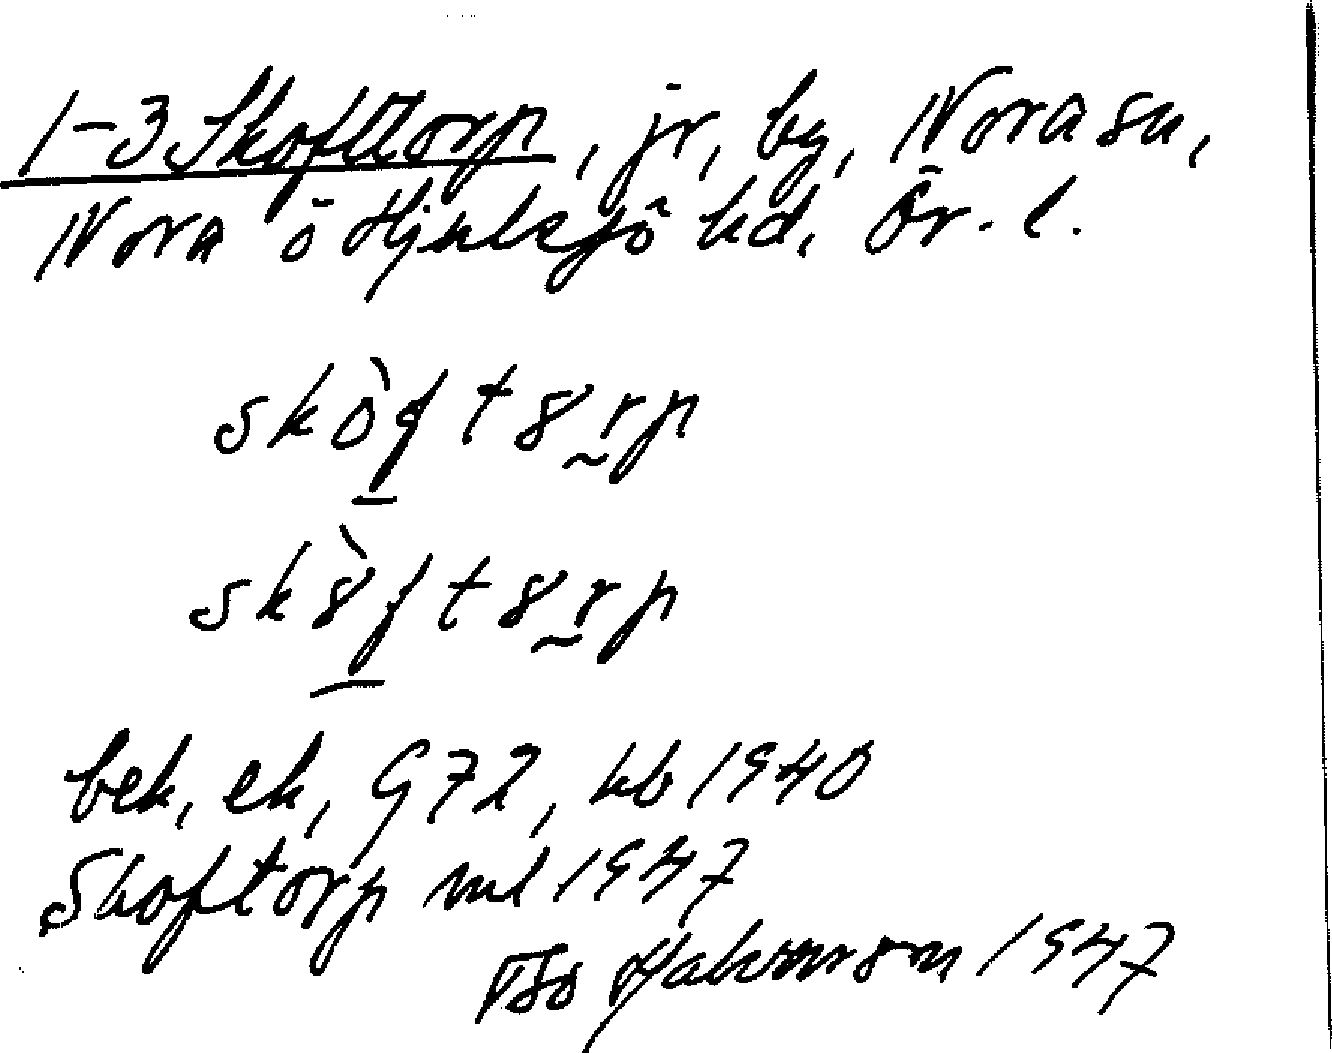 1-3 Skofttorp, jr, by, Nora sn,
Nora o Hjulsjö hd, Ör. l.
skòft8rp
sk8̀ft8rp
bek, ek, G72, kb 1940
Skoftorp ml 1947
Håkanson 1947